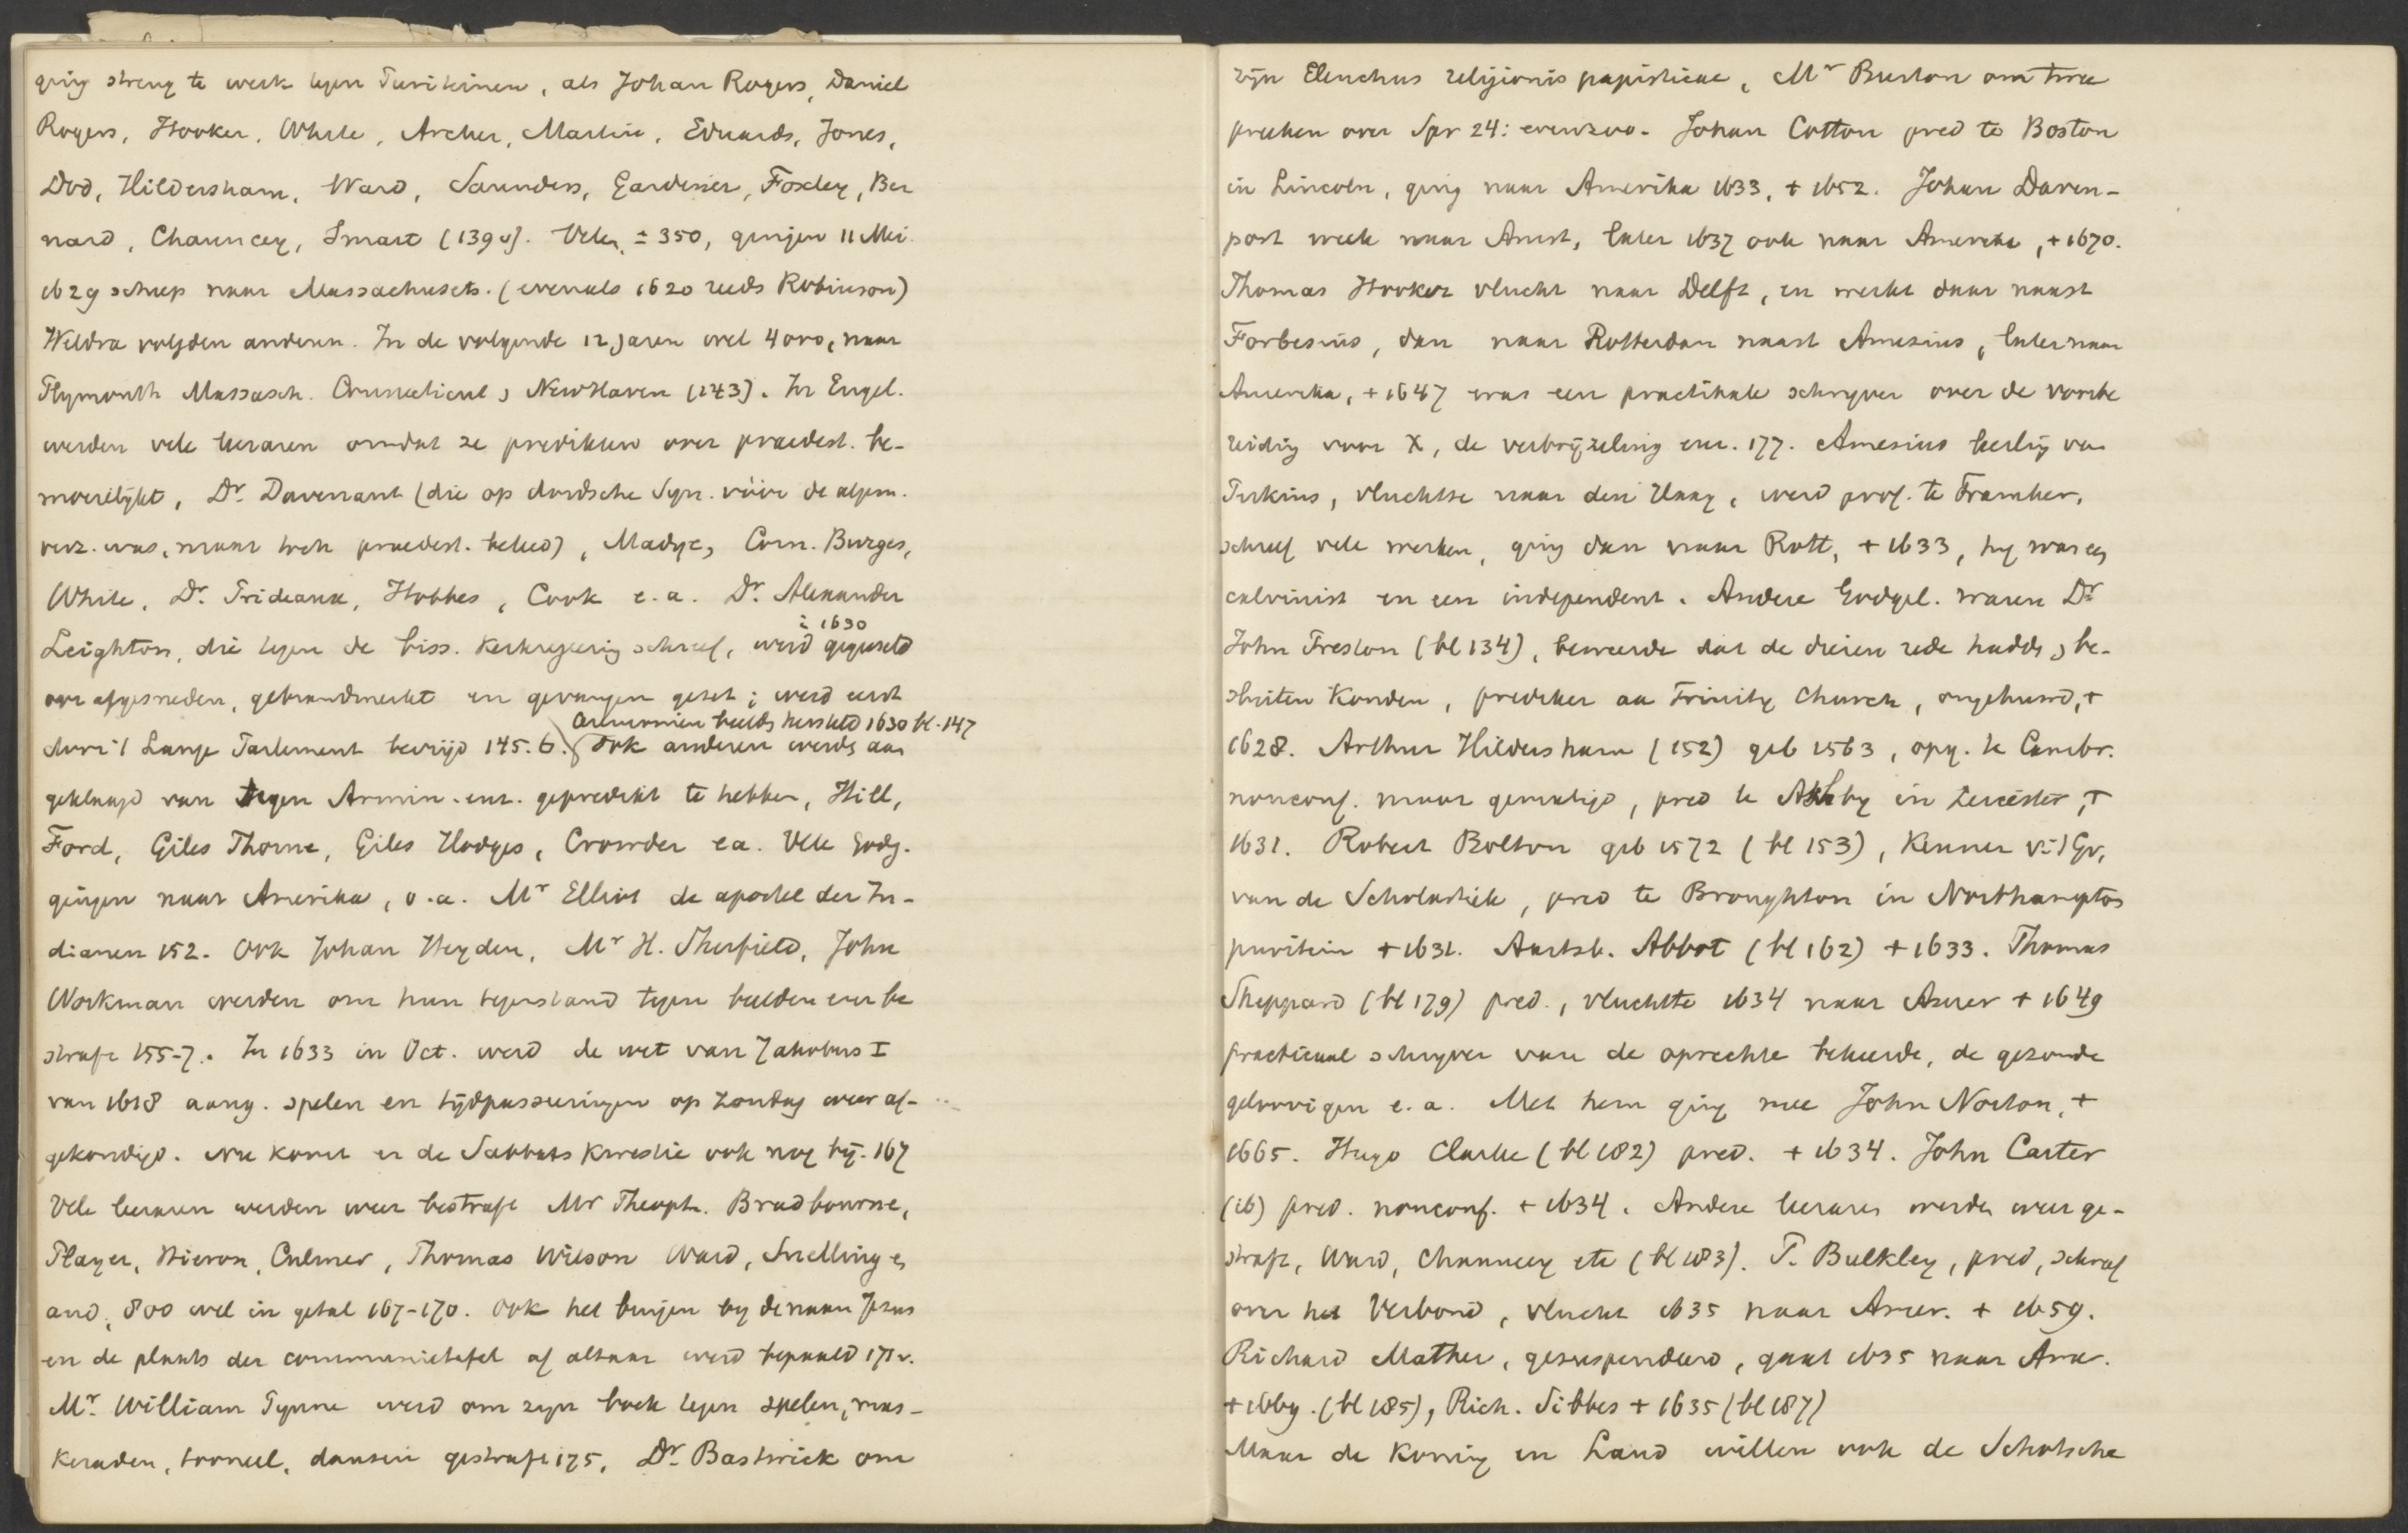 ging streng te werk tegen Puriteinen, als Johan Rogers, Daniel
Rogers, Hooker, White, Archer, Martin, Eduards, Jones,
Dod, Hildersham, Ward, Saunders, Gardener, Foxley, Ber
nard, Chauncey, Smart (139v). Velen ± 350, gingen 11 Mei
1629 scheep naar Massachusets. (evenals 1620 reeds Robinson)
Weldra volgden anderen. In de volgende 12 jaren wel 4000, naar
Plymouth Massasch. Connecticut, NewHaven (143). In Engel.
werden vele leeraren omdat ze predikten over praedest. be-
moeilijkt, Dr. Davenant (die op dordsche Syn. vóór de algem.
verz. was, maar toch praedest. beleed), Madye, Corn. Burges,
White, Dr. Prideaux, Hobbes, Cook e.a. Dr. Alexander
Leighton, die tegen de biss. kerkregeering schreef, werd gegeeseld
in 1630
oor afgesneden, gebrandmerkt en gevangen gezet; werd eerst
Arminianen beelds hersteld 1630 bl. 147
door 't Lange Parlement bevrijd 145.6. Ook anderen werds aan
geklaagd van tegen Armin. enz. gepredikt te hebben, Hill,
Ford, Giles Thorne, Giles Hodges, Crowder ea. Vele godg.
gingen naar Amerika, o.a. Mr Elliot de apostel der In-
dianen 152. Ook Johan Heyden, Mr H. Sherfield, John
Workman werden om hun tegenstand tegen beelden enz be
straft 155-7. In 1633 in Oct. werd de wet van Jakobus I
van 1618 aang. spelen en tijdpasseeringen op zondag weer af-
gekondigd. Nu komt er de Sabbats kwestie ook nog bij. 167
Vele leeraren werden weer bestraft Mr Theoph. Bradbourne,
Player, Hieron, Culmer, Thomas Wilson Ward, Snelling en
and, 800 wel in getal 167-170. Ook het buigen by de naam Jezus
en de plaats der communietafel of altaar werd bepaald 171v.
Mr. William Pynne werd om zyn boek tegen spelen, mas-
keraden, tooneel, dansen gestraft 175, Dr. Bastwick om
zijn Elenchus religionis papisticae, Mr Burton om twee
preeken over Spr 24: evenzoo. Johan Cotton pred te Boston
in Lincoln, ging naar Amerika 1633, + 1652. Johan Daven-
port week naar Amst, later 1637 ook naar Amerika, + 1670.
Thomas Hooker vlucht naar Delft, en werkt daar naast
Forbesius, dan naar Rotterdam naast Amesius, later naar
Amerika, + 1647 was een practikale schryver over de voorbe
reiding voor X, de verbrijzeling enz. 177. Amesius leerling van
Perkins, vluchtte naar den Haag, werd prof. te Franeker,
schreef vele werken, ging dan naar Rott, + 1633, hy was en
calvinist en een independent. Andere Godgel. waren Dr
John Preston (bl 134), beweerde dat de dieren rede hadds, be-
sluiten konden, prediker aa Trinity Church, ongehuwd, +
1628. Arthur Hildersham (152) geb 1563, opg. te Cambr.
nonconf. maar gematigd, pred te Ashby in Leicester, +
1631. Robert Bolton geb 1572 (bl 153), Kenner v.'t Gr,
van de Scholastiek, pred te Broughton in Northampton
puritein + 1631. Aartsb. Abbot (bl 162) + 1633. Thomas
Sheppard (bl 179) pred., vluchtte 1634 naar Amer + 1649
practicaal schryver van de oprechte bekeerde, de gezonde
geloovigen e.a. Met hem ging mee John Norton, +
1665. Hugo Clarke (bl 182) pred. + 1634. John Carter
(ib) pred. nonconf. + 1634. Andere leeraren werden weer ge-
straft, Ward, Chauncey etc (bl 183). P. Bulkley, pred, schreef
over het Verbond, vlucht 1635 naar Amer. + 1659.
Richard Mather, gesuspendeerd, gaat 1635 naar Am.
+ 1669. (bl 185), Rich. Sibbes + 1635 (bl 187)
Maar de Koning en Laud willen ook de Schotsche